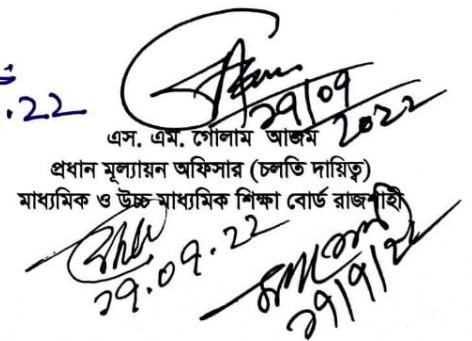 .22
২৭/০৭
2022
এস. এম. গোলাম আজম
প্রধান মূল্যায়ন অফিসার (চলতি দায়িত্ব)
মাধ্যমিক ও উচ্চ মাধ্যমিক শিক্ষা বোর্ড রাজশাহী
২৭.০৭.২২
২৭/৭/২২